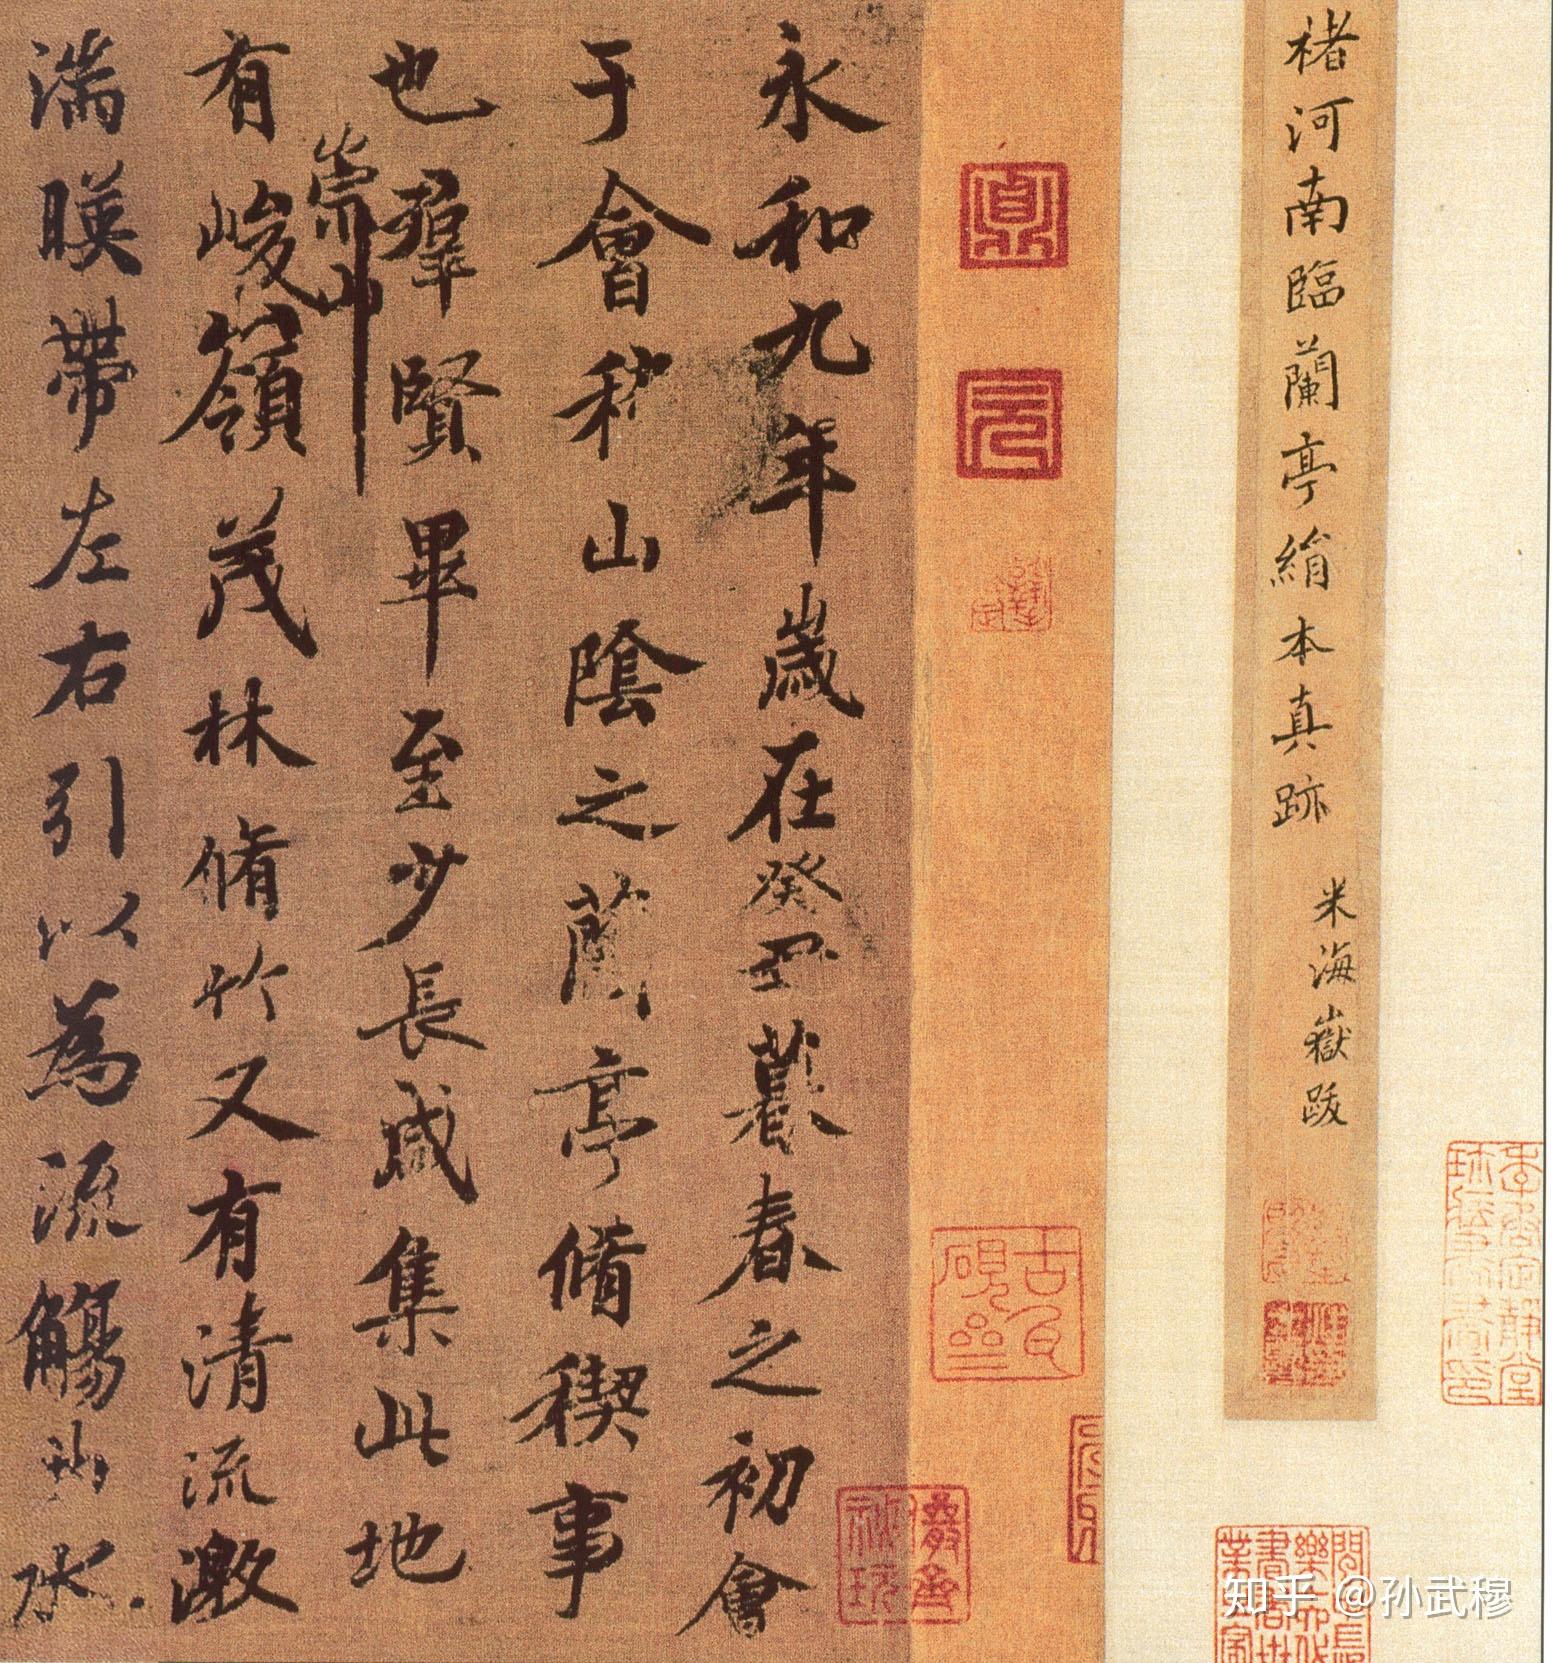 褚河南臨蘭亭絹本真跡
米海嶽跋
永和九年歲在癸丑暮春之初會
于會稽山陰之蘭亭脩稧事
也羣賢畢至少長咸集此地
有崇山峻嶺茂林脩竹又有清流激
湍暎帶左右引以為流觴曲水
知乎 @孙武穆